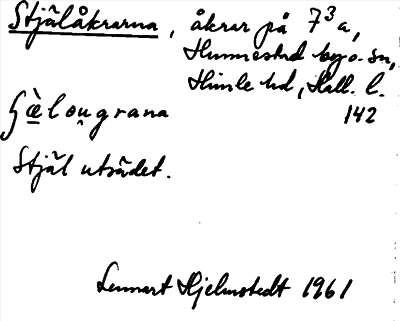 Stjälåkrarna, åkrar på 7³a,
Hunnestad by o. sn,
Himle hd, Hall. l.
142
ʃæ̀lou̯grana
Stjäl utsädet.
Lennart Hjelmstedt 1961